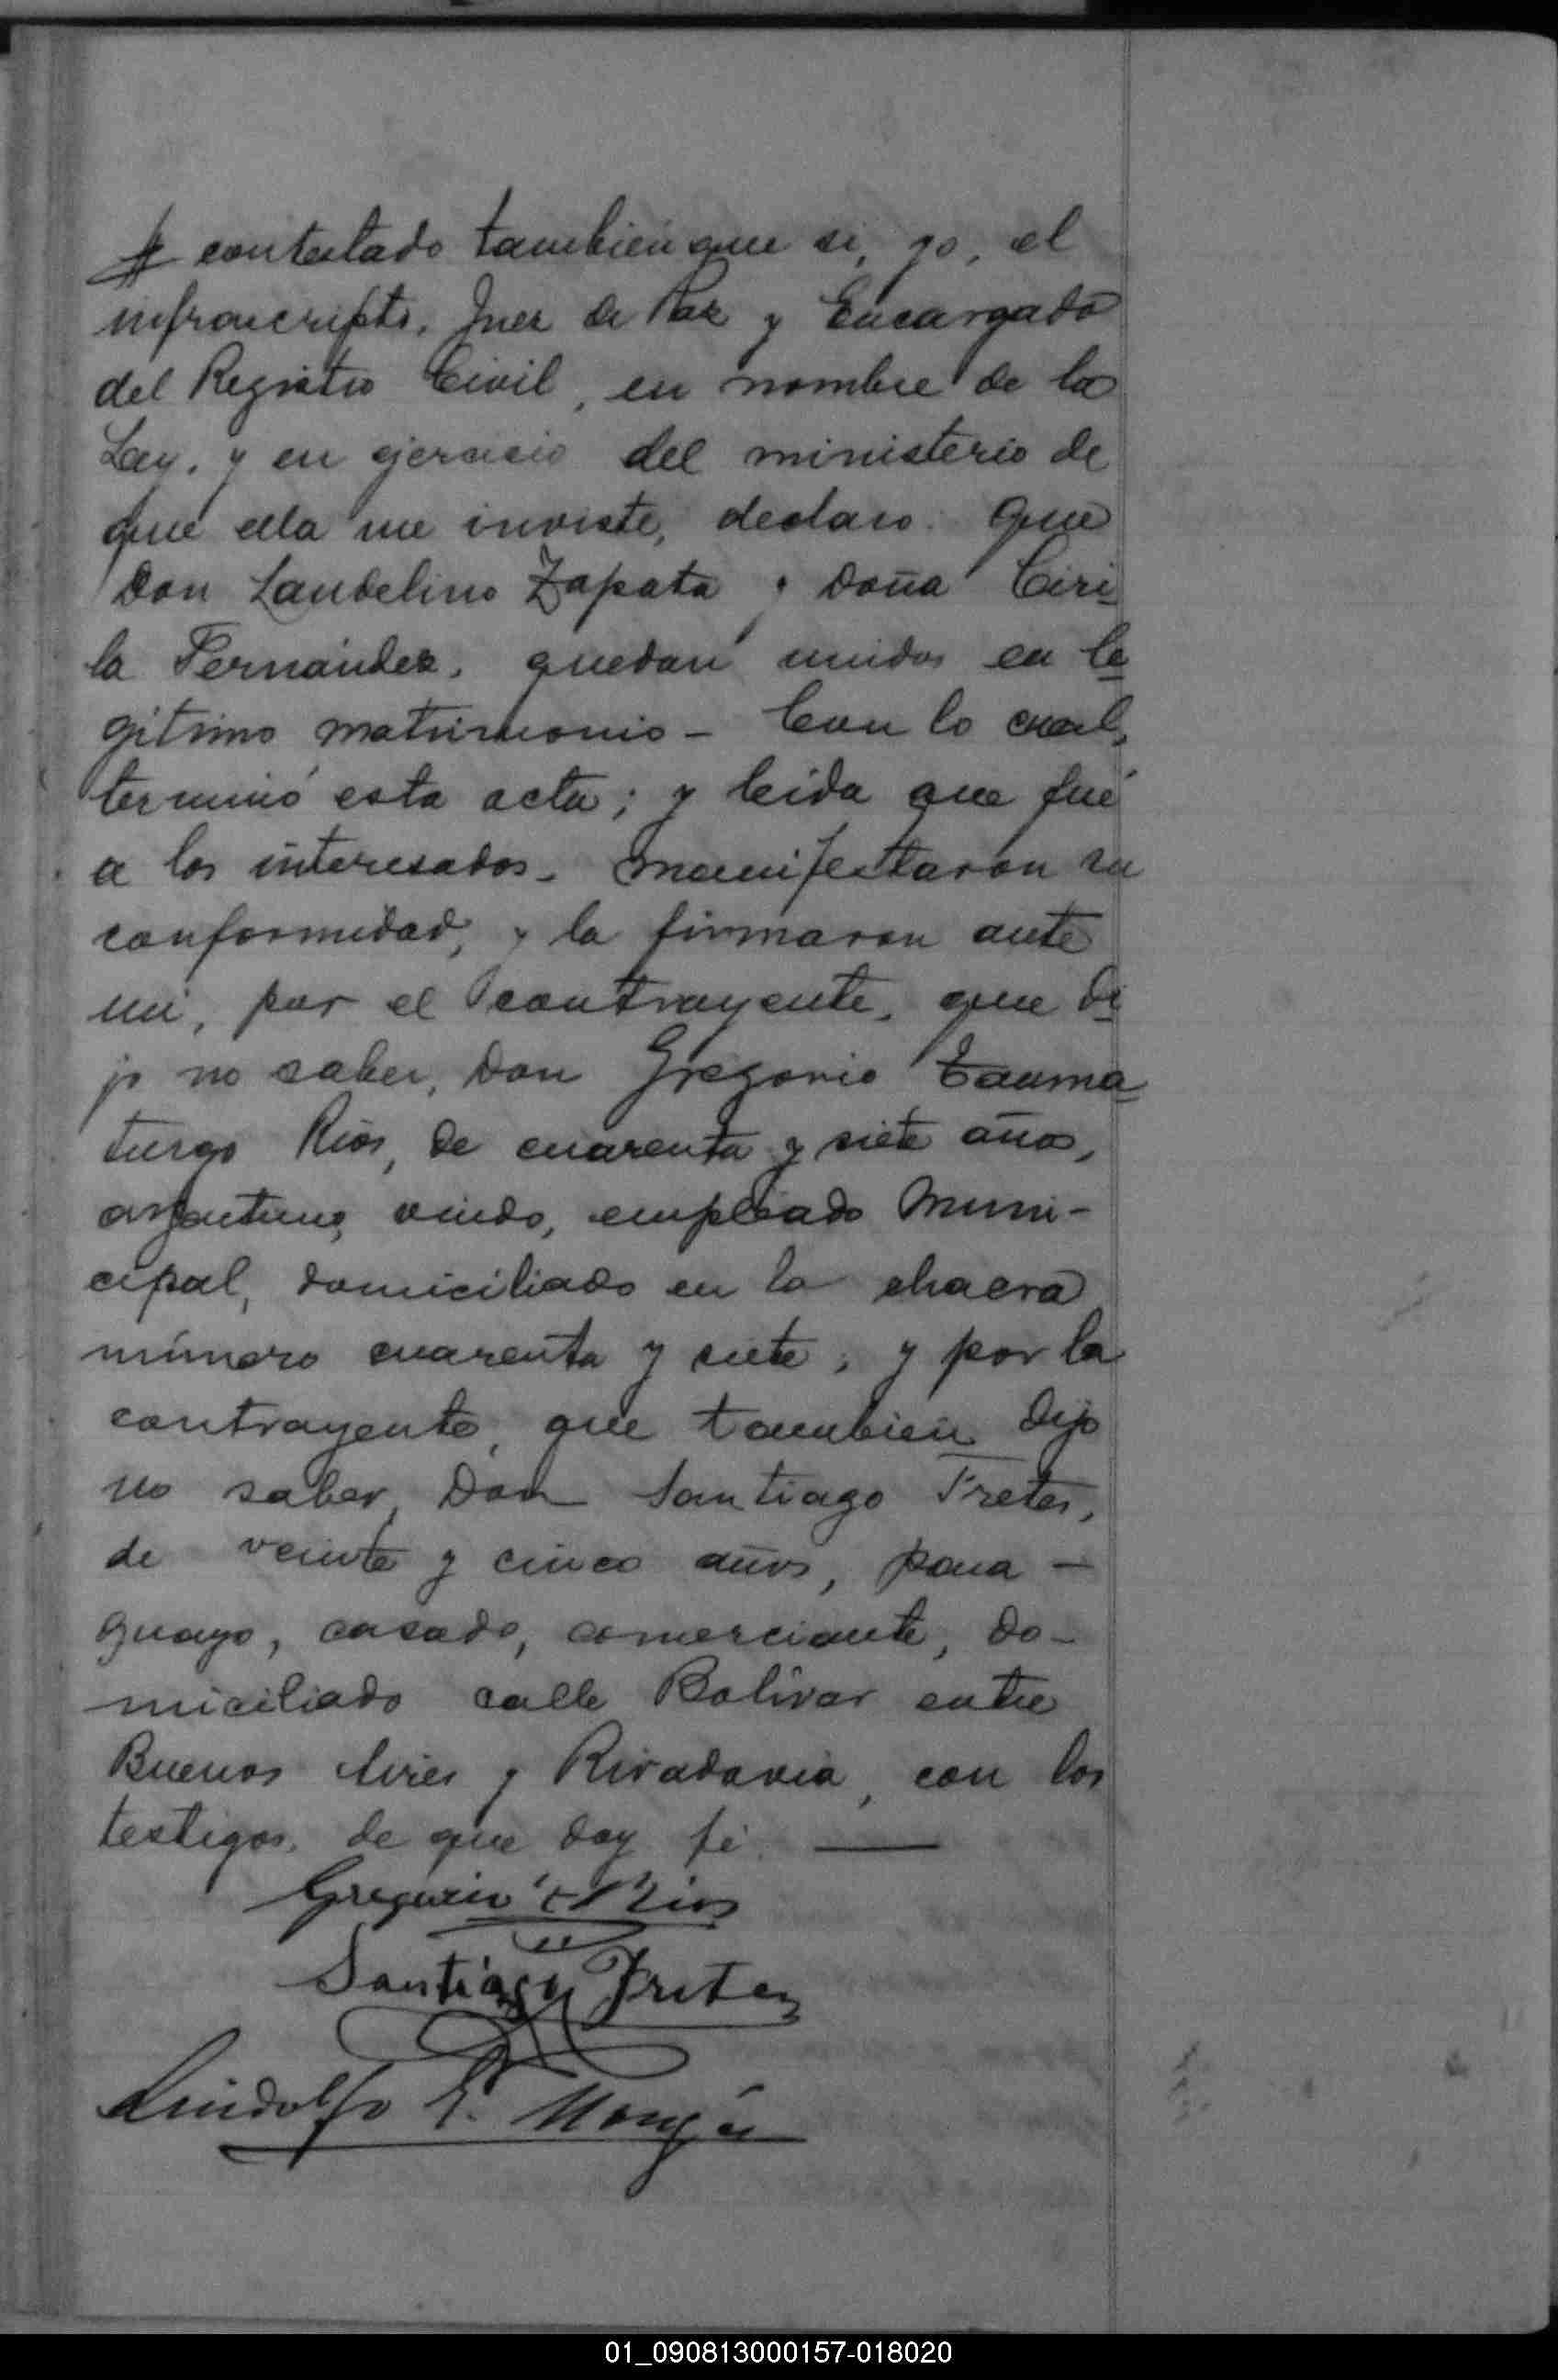 contestado tambien que si, yo, el
infrascripto, Juez de Paz y Encargado
del Registro Civil, en nombre de la
Ley, y en ejercicio del ministerio de
que ella me inviste, declaro: que
Don Laudelino Zapata y Doña Ciri-
la Fernández, quedan unidos en le-
gítimo matrimonio - Con lo cual,
terminó esta acta; y leida que fué
a los interesados - manifestaron su
conformidad, y la firmaron ante
mi, por el contrayente, que di-
jo no saber, Don Gregorio Tauma-
turgo Rios, de cuarenta y siete años,
argentino, viudo, empleado Muni-
cipal, domiciliado en la chacra
número cuarenta y siete; y por la
contrayente, que tambien dijo
no saber, Don Santiago Fretes,
de veinte y cinco años, para-
guayo, casado, comerciante, do-
miciliado calle Bolívar entre
Buenos Aires y Rivadavia, con los
testigos, de que doy fé.
Gregorio T Rios
Santiago Fretes
Lindolfo E.
01_090813000157-018020